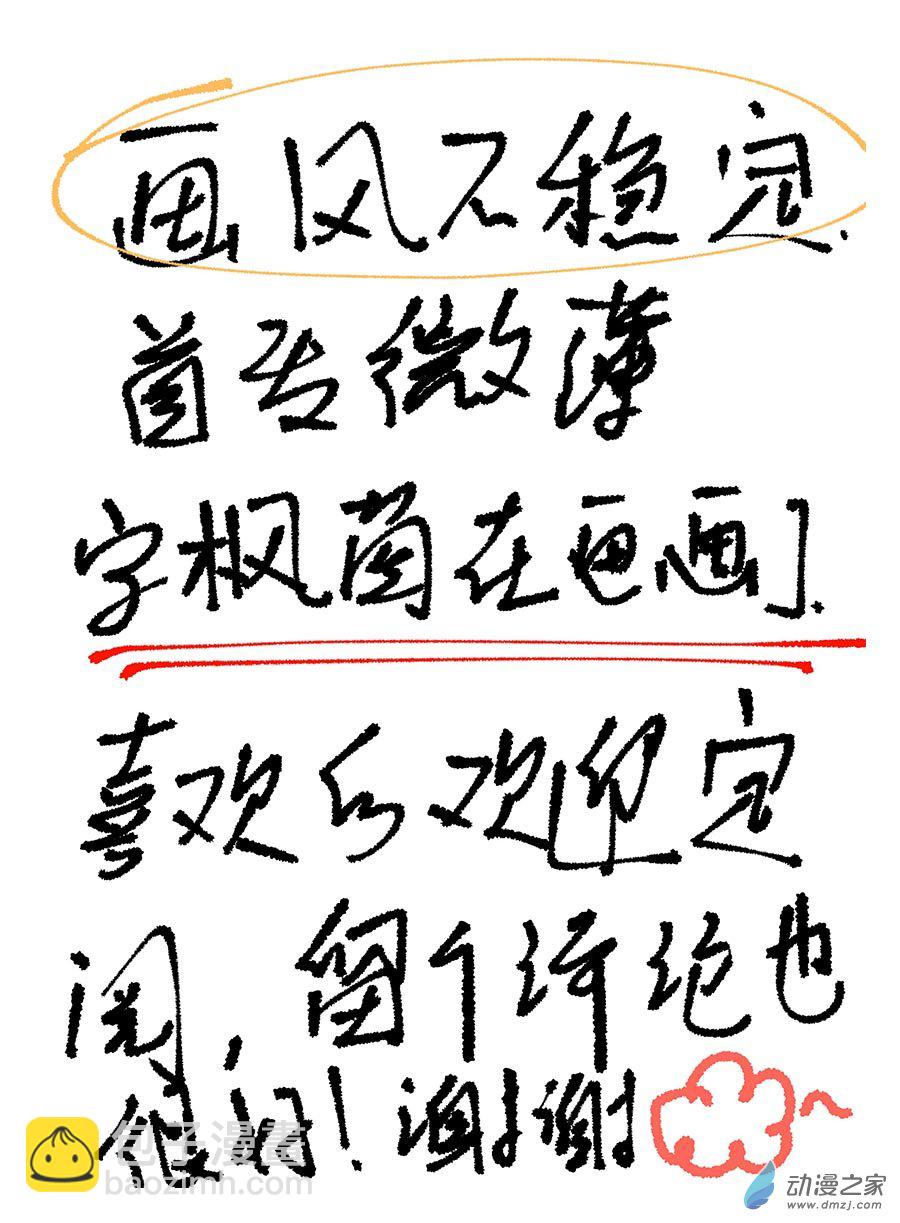 画风不稳定.
首发微薄
字枫茵在画画].
喜欢的欢迎订
阅,留个评论也
很好!谢谢~
包子漫畫
baozimh.com
动漫之家
www.dmzj.com